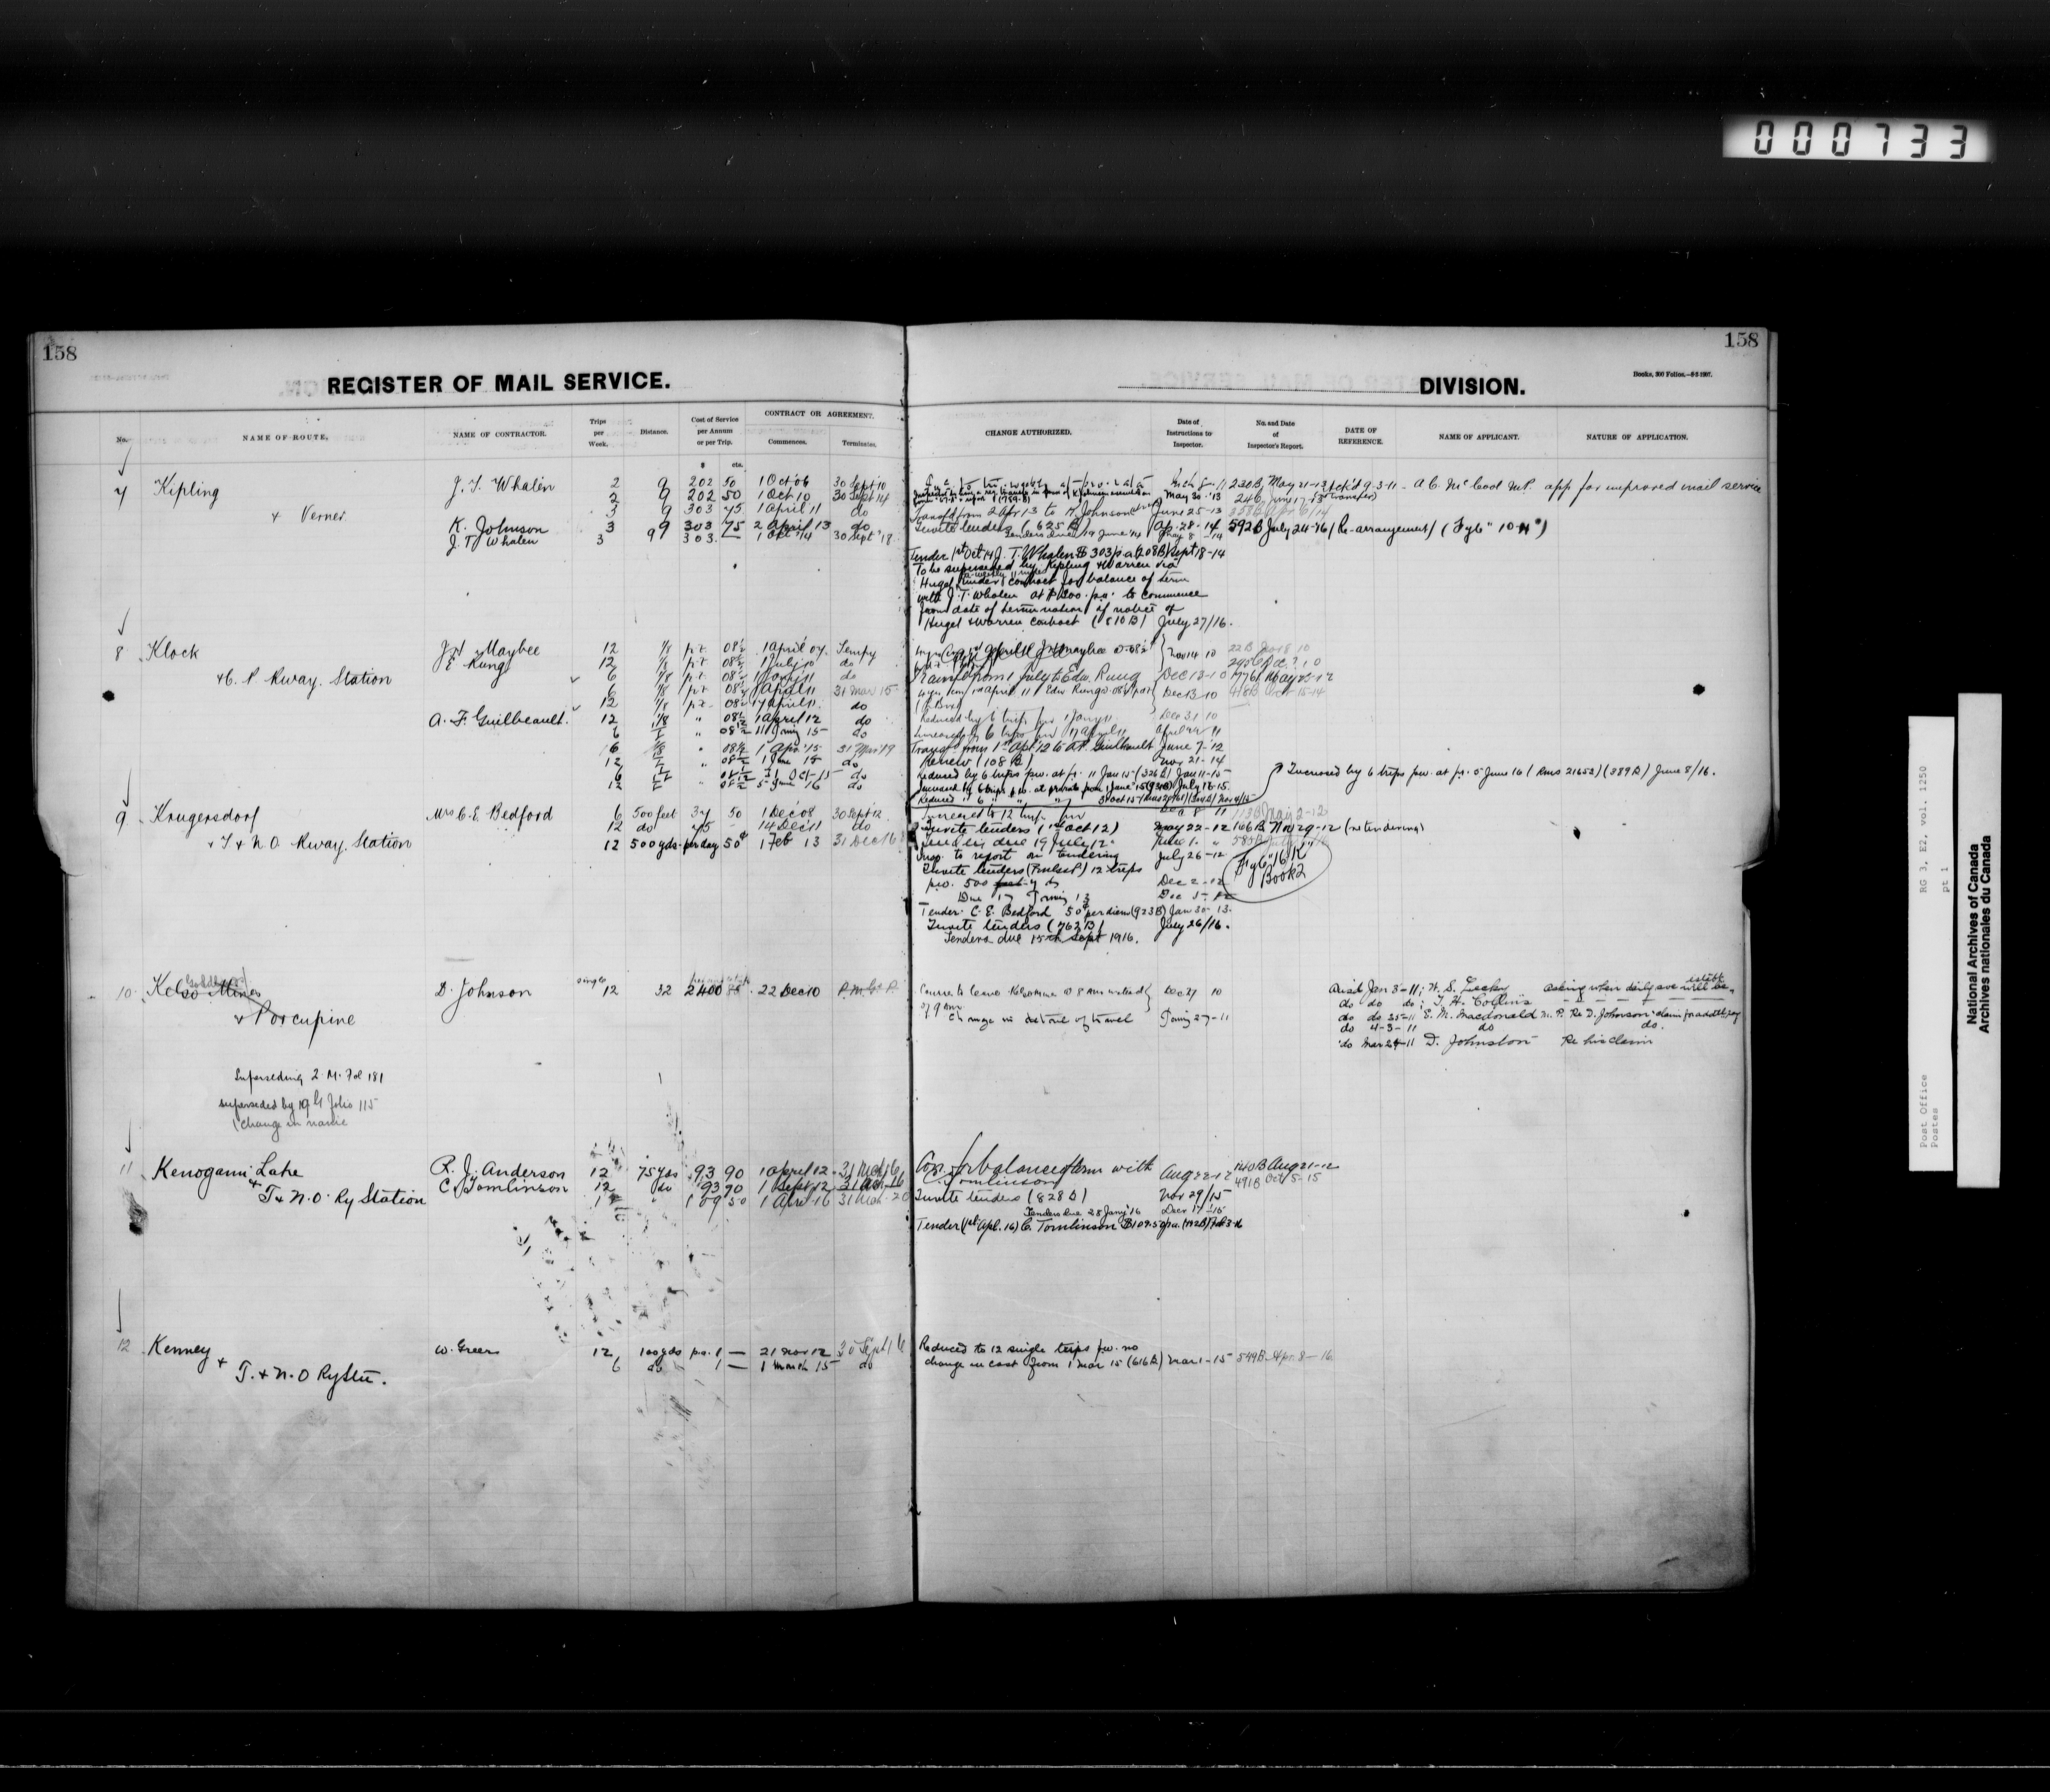 000733
158
158
REGISTER OF MAIL SERVICE.
DIVISION.
Books, 300 Folios.—9-5-1907.
No.
NAME OF ROUTE.
NAME OF CONTRACTOR.
Trips per Week.
Distance.
Cost of Service per Annum or per Trip.
CONTRACT OR AGREEMENT.
Commences.
Terminates.
CHANGE AUTHORIZED.
Date of Instructions to Inspector.
No. and Date of Inspector's Report.
DATE OF REFERENCE.
NAME OF APPLICANT.
NATURE OF APPLICATION.
$ cts.
7 Kipling J. T. Whalen 2 9 202 50 1 Oct 06 30 Sept 10
2 9 202 50 1 Oct 10 30 Sept 14
& Verner 3 9 303 75 1 April 11 do
K. Johnson 3 9 303 75 2 April 13 do
J. T. Whalen 3 9 303 — 1 Oct '14 30 Sept '18
230B May 21-12 9-3-11 - A C. McCool M.P. app for improved mail service
May 30 '13 246 June 17-13 (Transfer)
Transf. from 2 Apr 13 to K Johnson June 25-13
Invite tenders (625 B) Ap. 28-14 592B July 24-16 (Re-arrangement) (Fyle "10-H")
Tenders due 19 June '14 May 8-14
Tender 1st Oct 14 J. T. Whalen $303 p.a. (208B) Sept 18-14
To be superseded by Kipling & Warren via
Hugel under contract for balance of term
with J. T. Whalen at $1200. p.a. to commence
from date of termination of notice of
Hugel & Warren contract (810B) July 27/16.
8 Klock J H Maybee 12 1/8 p.t. 08½ 1 April 07 Tempy
E Rung 12 1/8 p.t 08½ 1 July 10 do
& C. P. Rway. Station 6 1/8 p.t 08½ 1 Jany 11 do
6 1/8 p.t 08½ 1 April 11 31 Mar 15
12 1/8 p.t. 08½ 17 April 11 do
A. F. Guilbeault. 12 1/8 " 08½ 1 April 12 do
6 " 08½ 11 Jany 15 do
6 1/8 " 08½ 1 Apr. '15 31 Mar '19
12 " 08½ 1 June 15 do
6 31 Oct-15 do
12 " 08½ 5 June 16 do
Nov 14 10
Transf from 1 July to Edw. Rung Dec 13-10
Dec 13-10
Reduced by 6 trips pw 1 Jany 11 Dec 31 10
Increased by 6 trips pw 17 April 11
Transf. from 1st Apr 12 to A F. Guilbeault June 7-'12
Renew (108 B) Nov 21-14
Reduced by 6 trips pw. at p.r. 11 Jan 15 (326B) Jan 11-15
Increased by 6 trips p.w. at prorate from 1 June '15 July 18-15.
Increased by 6 trips pw. at p.r. 5 June 16 (Rms 21652) (389 B) June 8/16.
9 Krugersdorf Mrs C. E. Bedford 6 500 feet 37 50 1 Dec '08 30 Sept 12
12 do 75 - 14 Dec 11 do
& T & N. O. Rway. Station 12 500 yds. per day 50¢ 1 Feb 13 31 Dec 16
Increased to 12 trips pw Dec 8 11 113B May 2-12
Invite tenders (1st Oct 12) May 22-12 166B Nov 29-12 (re tendering)
Tenders due 19 July 12. June 1. "
Insp. to report on tendering July 26-12
Invite tenders 12 trips
p.w. 500 yds Dec 2-12
Due 17 Jany 13 Dec 5-12
Tender C. E. Bedford 50¢ per diem (923B) Jan 30-13.
Invite tenders (762 B) July 26/16.
Tenders due 15th Sept 1916.
Fyle "16 K" Book 2
10 Kelso Mines D. Johnson single 12 32 2400 22 Dec 10
& Porcupine
Courier to leave Kelso Mines @ 8 am instead of 9 am Dec 27 10
Change in detail of travel Jany 27-11
Jan 3-11; asking when daily sve will be establ.
do do do; T. H. Collins
do do 25-11 E. M. Macdonald M. P. Re D. Johnson's claim for addtl pay
do 4-3-11 do do.
do Mar 24-11 D. Johnston Re his claim
Superseding 2. M. Fol 181
superseded by 19 G Folio 115
(Change in name
11 Kenogami Lake R. J. Anderson 12 75 yds 93 90 1 April 12 31 Mch 16
& C. Tomlinson 12 do 93 90 1 Sept 12 31 Mch 16
T & N. O. Ry Station 109 50 1 Apr 16 31 Mch 20
Con. for balance of term with C. Tomlinson Aug 22-12 140B Aug 21-12
491B Oct 5-15
Invite tenders (828 B) Nov 29/15
Tenders due 28 Jany '16 Decr 17-15
Tender (1st Apl. 16) C. Tomlinson $109.50 p.a.
12 Kenney W. Greer 12 100 yds pa. 1 — 21 Nov 12 30 Sept 16
& T. & N. O Ry Stn. 6 do 1 — 1 March 15 do
Reduced to 12 single trips pw. no
change in cost from 1 Mar 15 (616 B) Mar 1-15 549B Apr. 8-16
Post Office
Postes
RG 3, E2, vol. 1250
pt 1
National Archives of Canada
Archives nationales du Canada